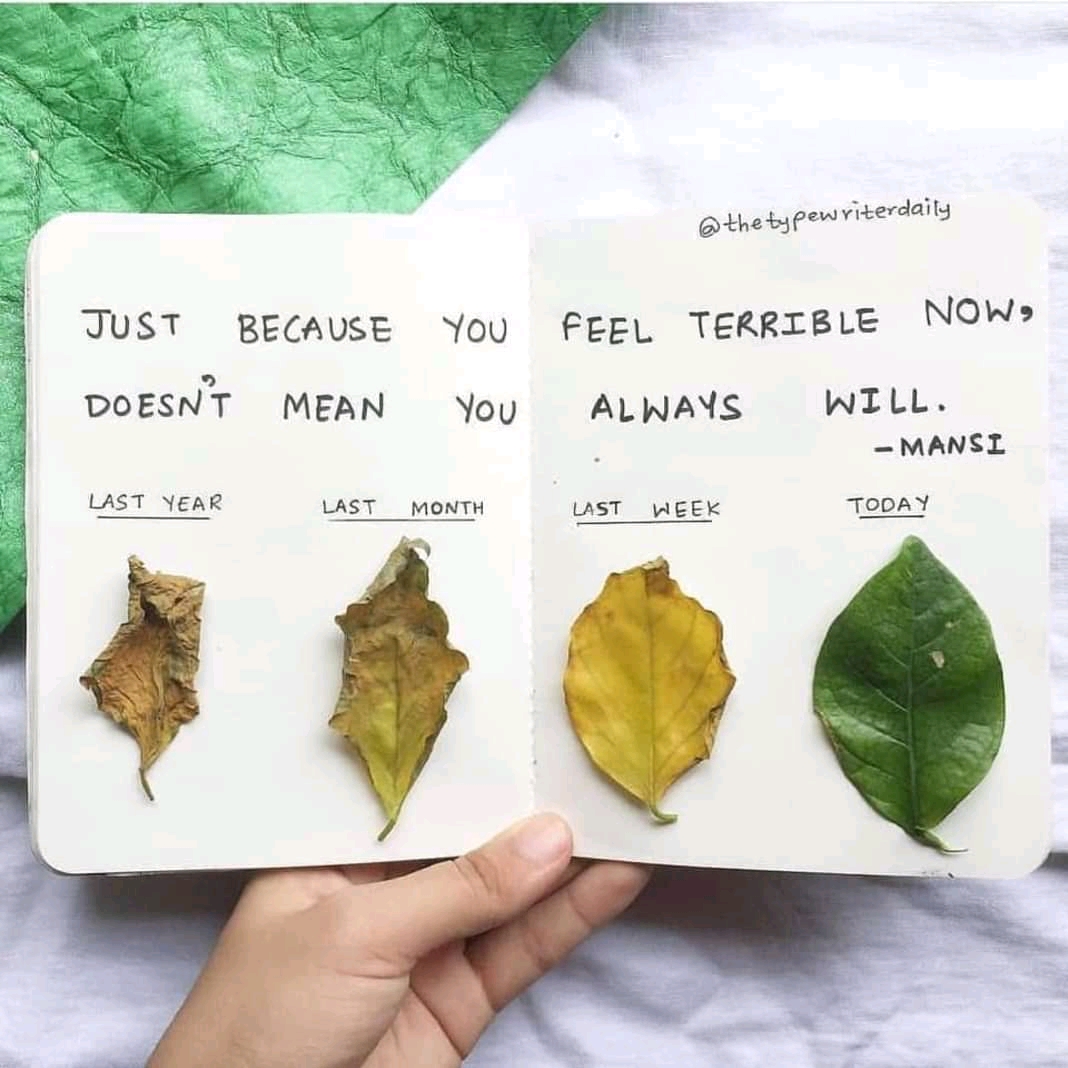 @thetypewriterdaily
JUST BECAUSE YOU FEEL TERRIBLE NOW,
DOESN'T MEAN YOU ALWAYS WILL.
-MANSI
LAST YEAR LAST MONTH LAST WEEK TODAY